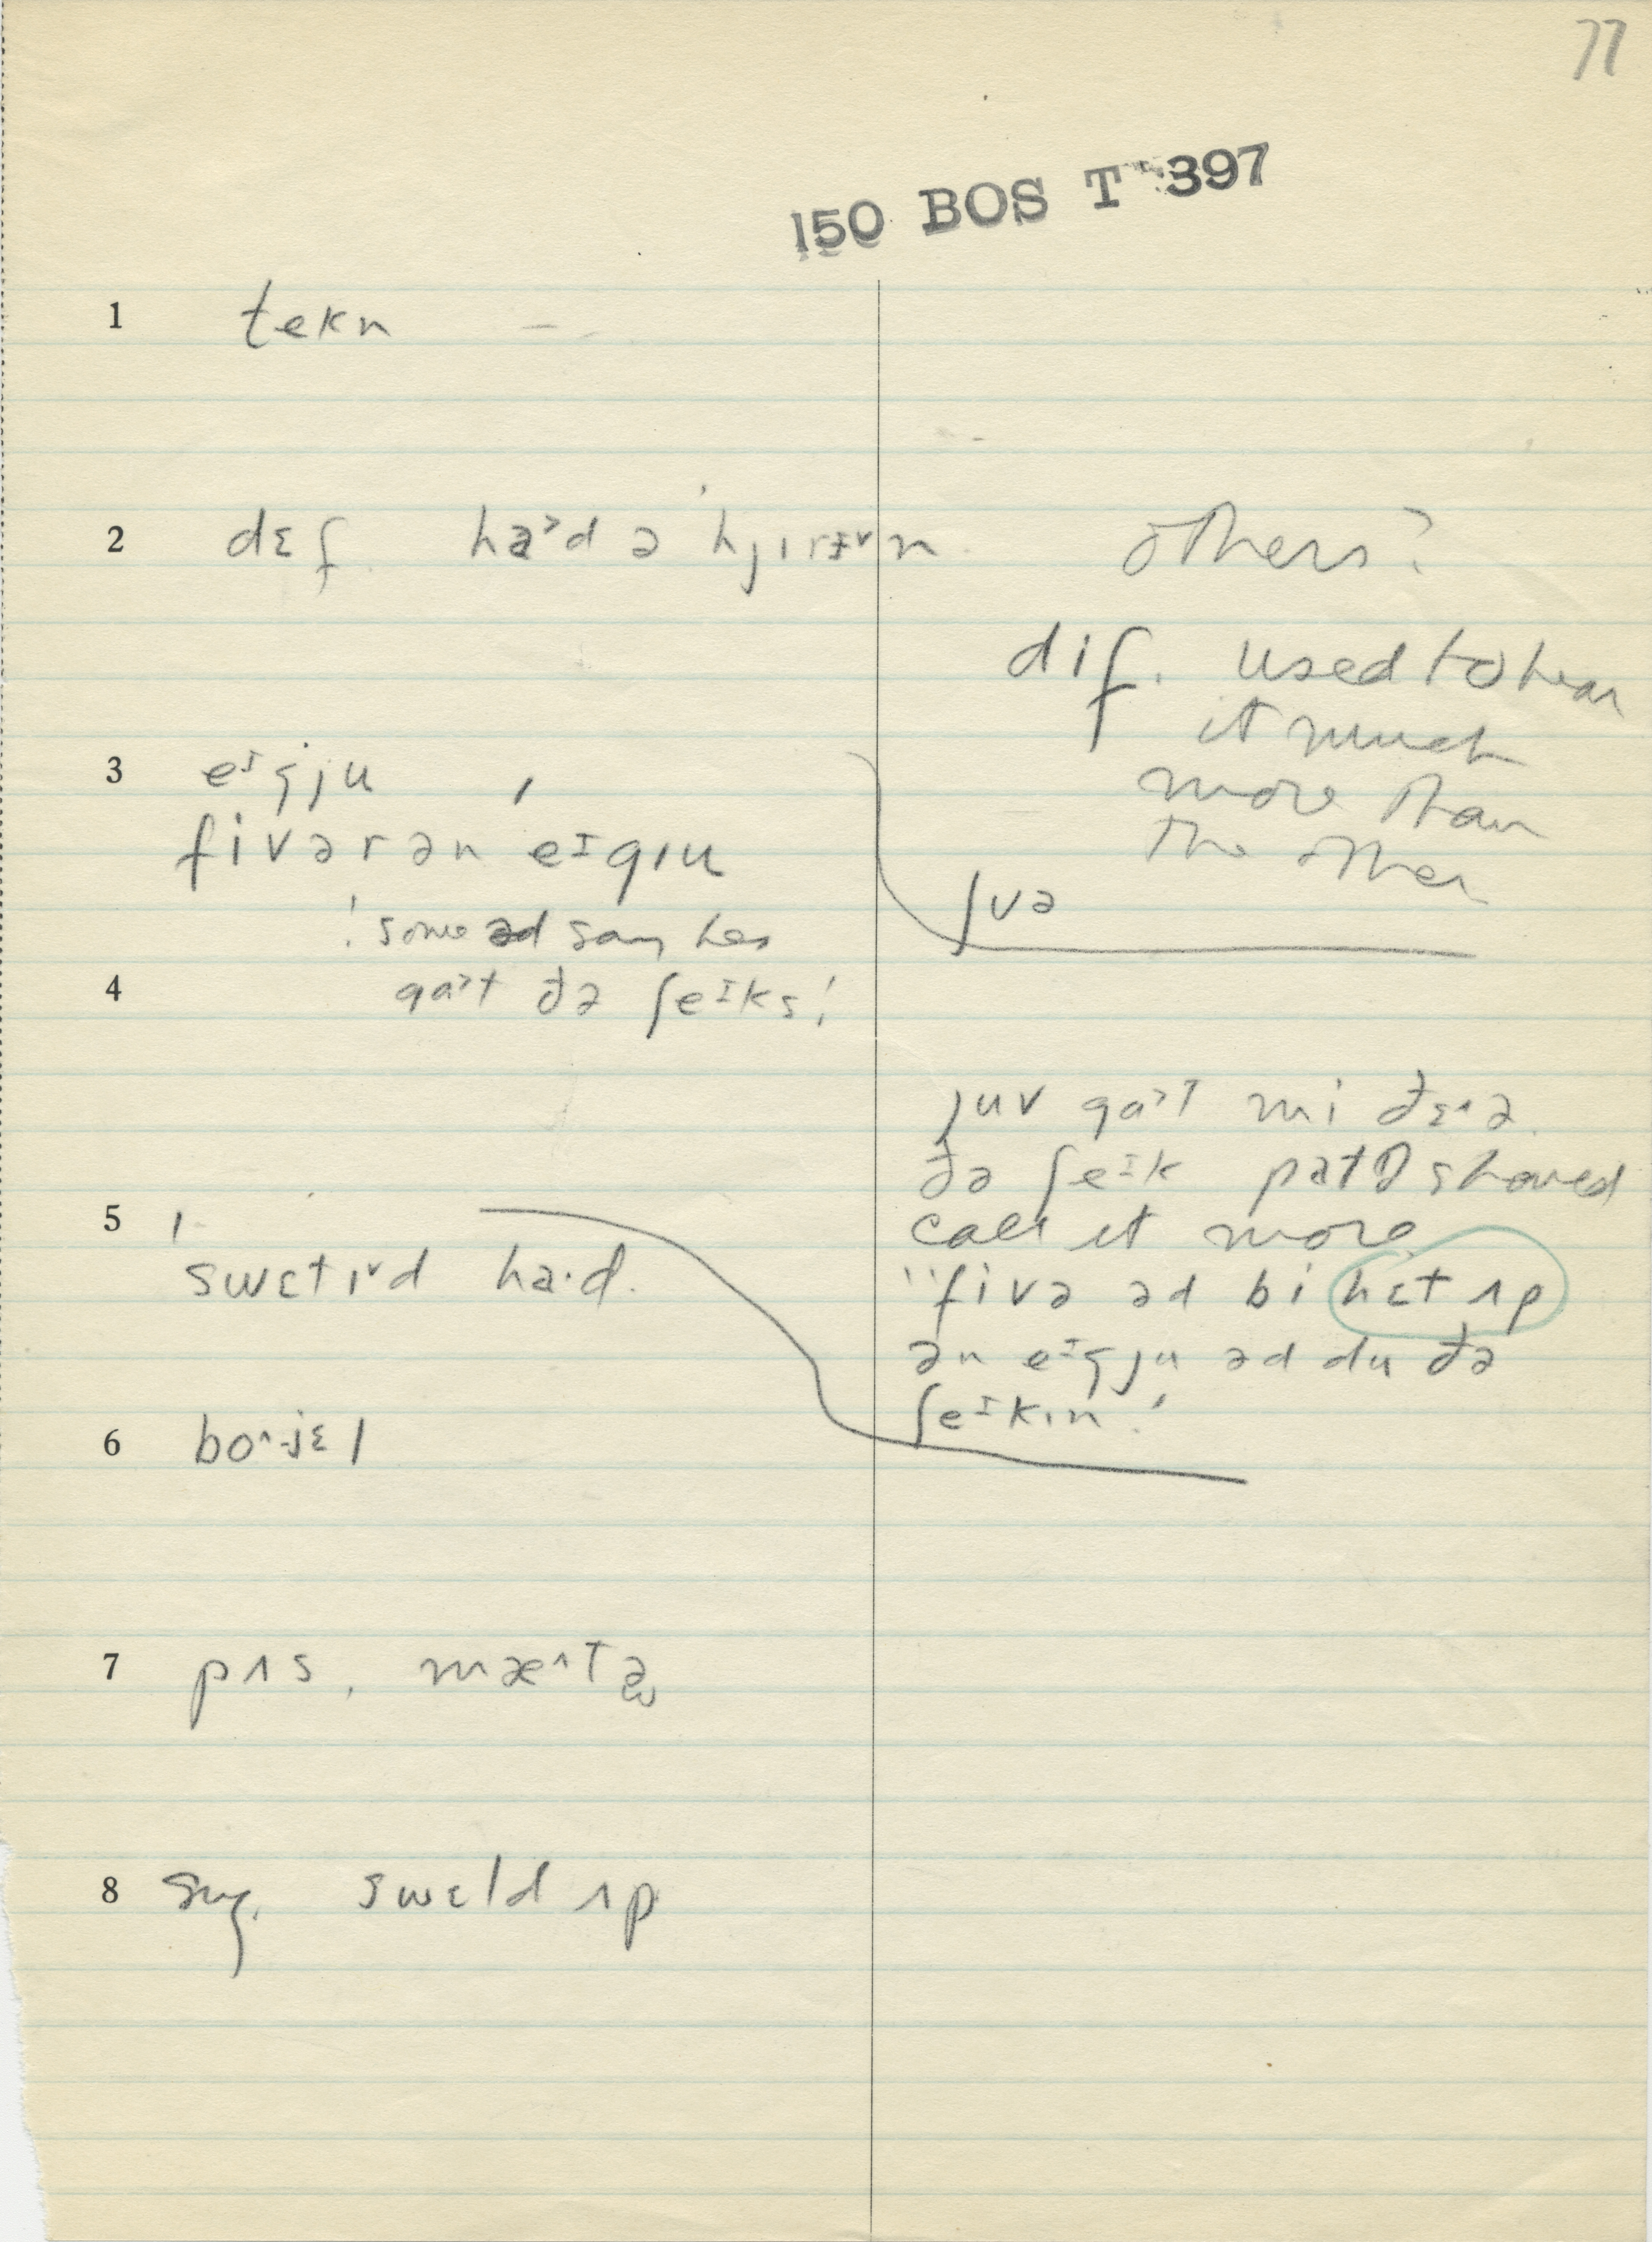 77
150 BOS T 397
1 tekn
2 dɛf. ha˃d ə hjɪrɪ˅n
others?
dif. used to hear
it much
more than
the other
3 eɪgju
fivər ən eɪgɪu
ʃvə
'some əd say hes
4 ga˃t ðə ʃeɪks!
juv ga˃t mi ðɛ˄ə
ðə ʃeɪk
call it more
5 swɛtɪ˅d ha·d.
"fivə əd bi hɛt ʌp
ən eɪgju əd du ðə
ʃeɪkɪn!
6 bo˄jɛl
7 pʌs, mæ˄tə
8 sug. swɛld ʌp